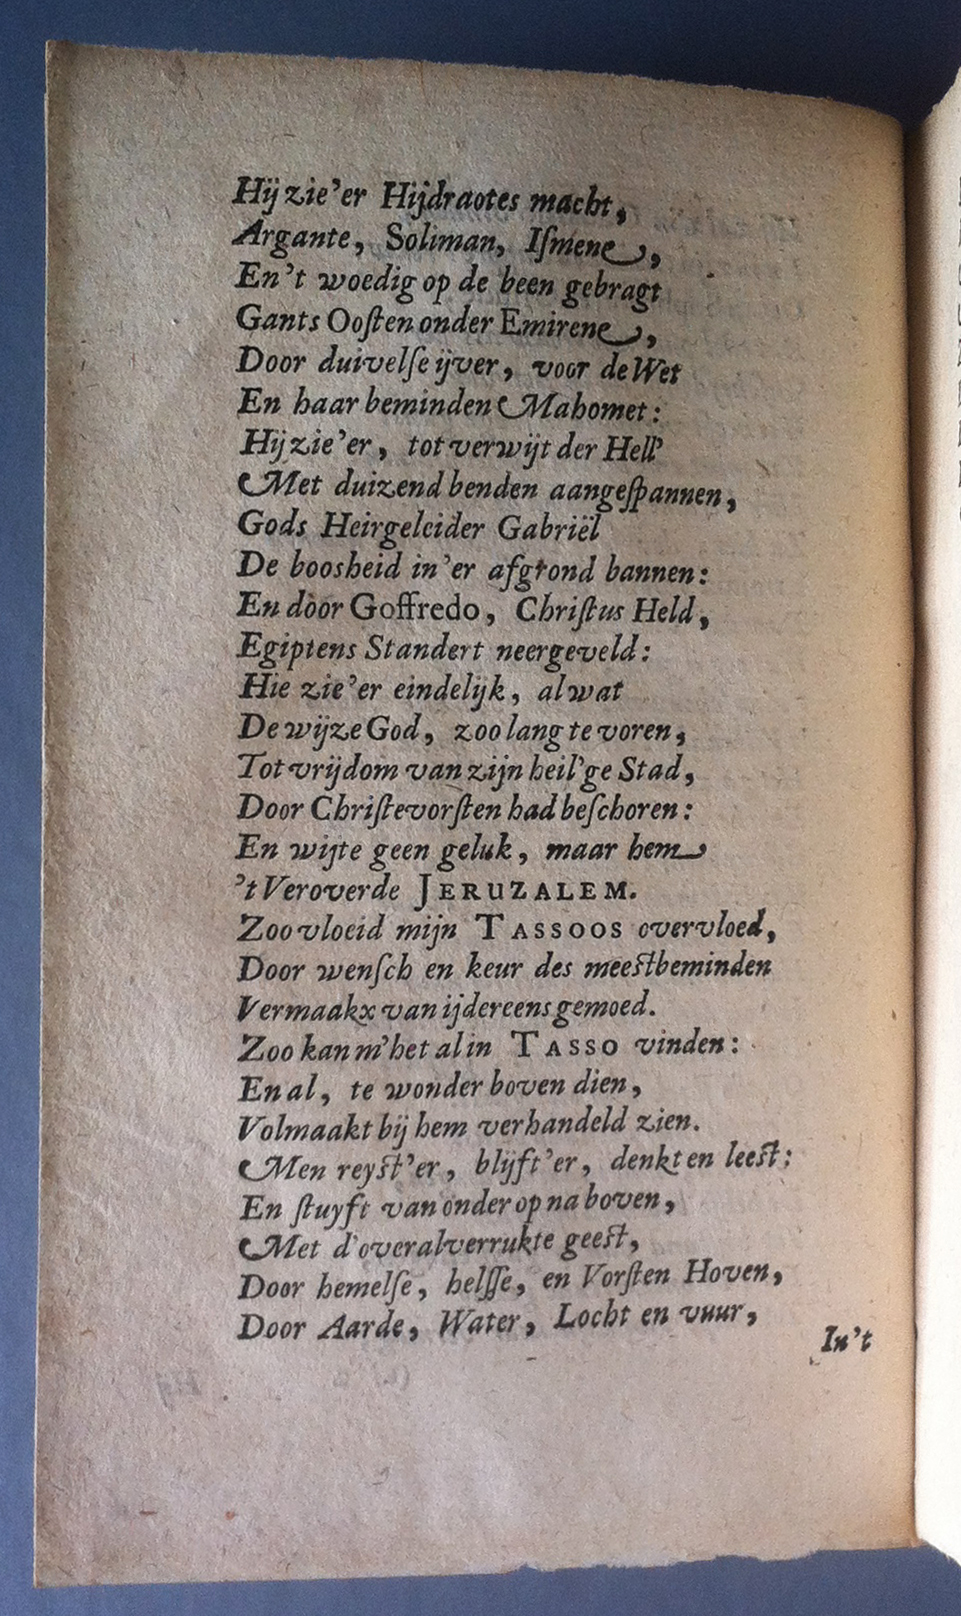 Hij zie'er Hijdraotes macht,
Argante, Soliman, Iſmene,
En't woedig op de been gebragt
Gants Ooſten onder Emirene,
Door duivelſe ijver, voor de Wet
En haar beminden Mahomet:
Hij zie'er, tot verwijt der Hell'
Met duizend benden aangeſpannen,
Gods Heirgeleider Gabriël
De boosheid in'er afgrond bannen:
En door Goffredo, Chriſtus Held,
Egiptens Standert neergeveld:
Hie zie'er eindelijk, al wat
De wijze God, zoo lang te voren,
Tot vrijdom van zijn heil'ge Stad,
Door Chriſtevorſten had beſchoren:
En wijte geen geluk, maar hem
't Veroverde JERUZALEM.
Zoo vloeid mijn TASSOOS overvloed,
Door wenſch en keur des meeſtbeminden
Vermaakx van ijdereens gemoed.
Zoo kan m'het al in TASSO vinden:
En al, te wonder boven dien,
Volmaakt bij hem verhandeld zien.
Men reyſt'er, blijft'er, denkt en leeſt:
En ſtuyft van onder op na boven,
Met d'overalverrukte geeſt,
Door hemelſe, helſſe, en Vorſten Hoven,
Door Aarde, Water, Locht en vuur,
In't